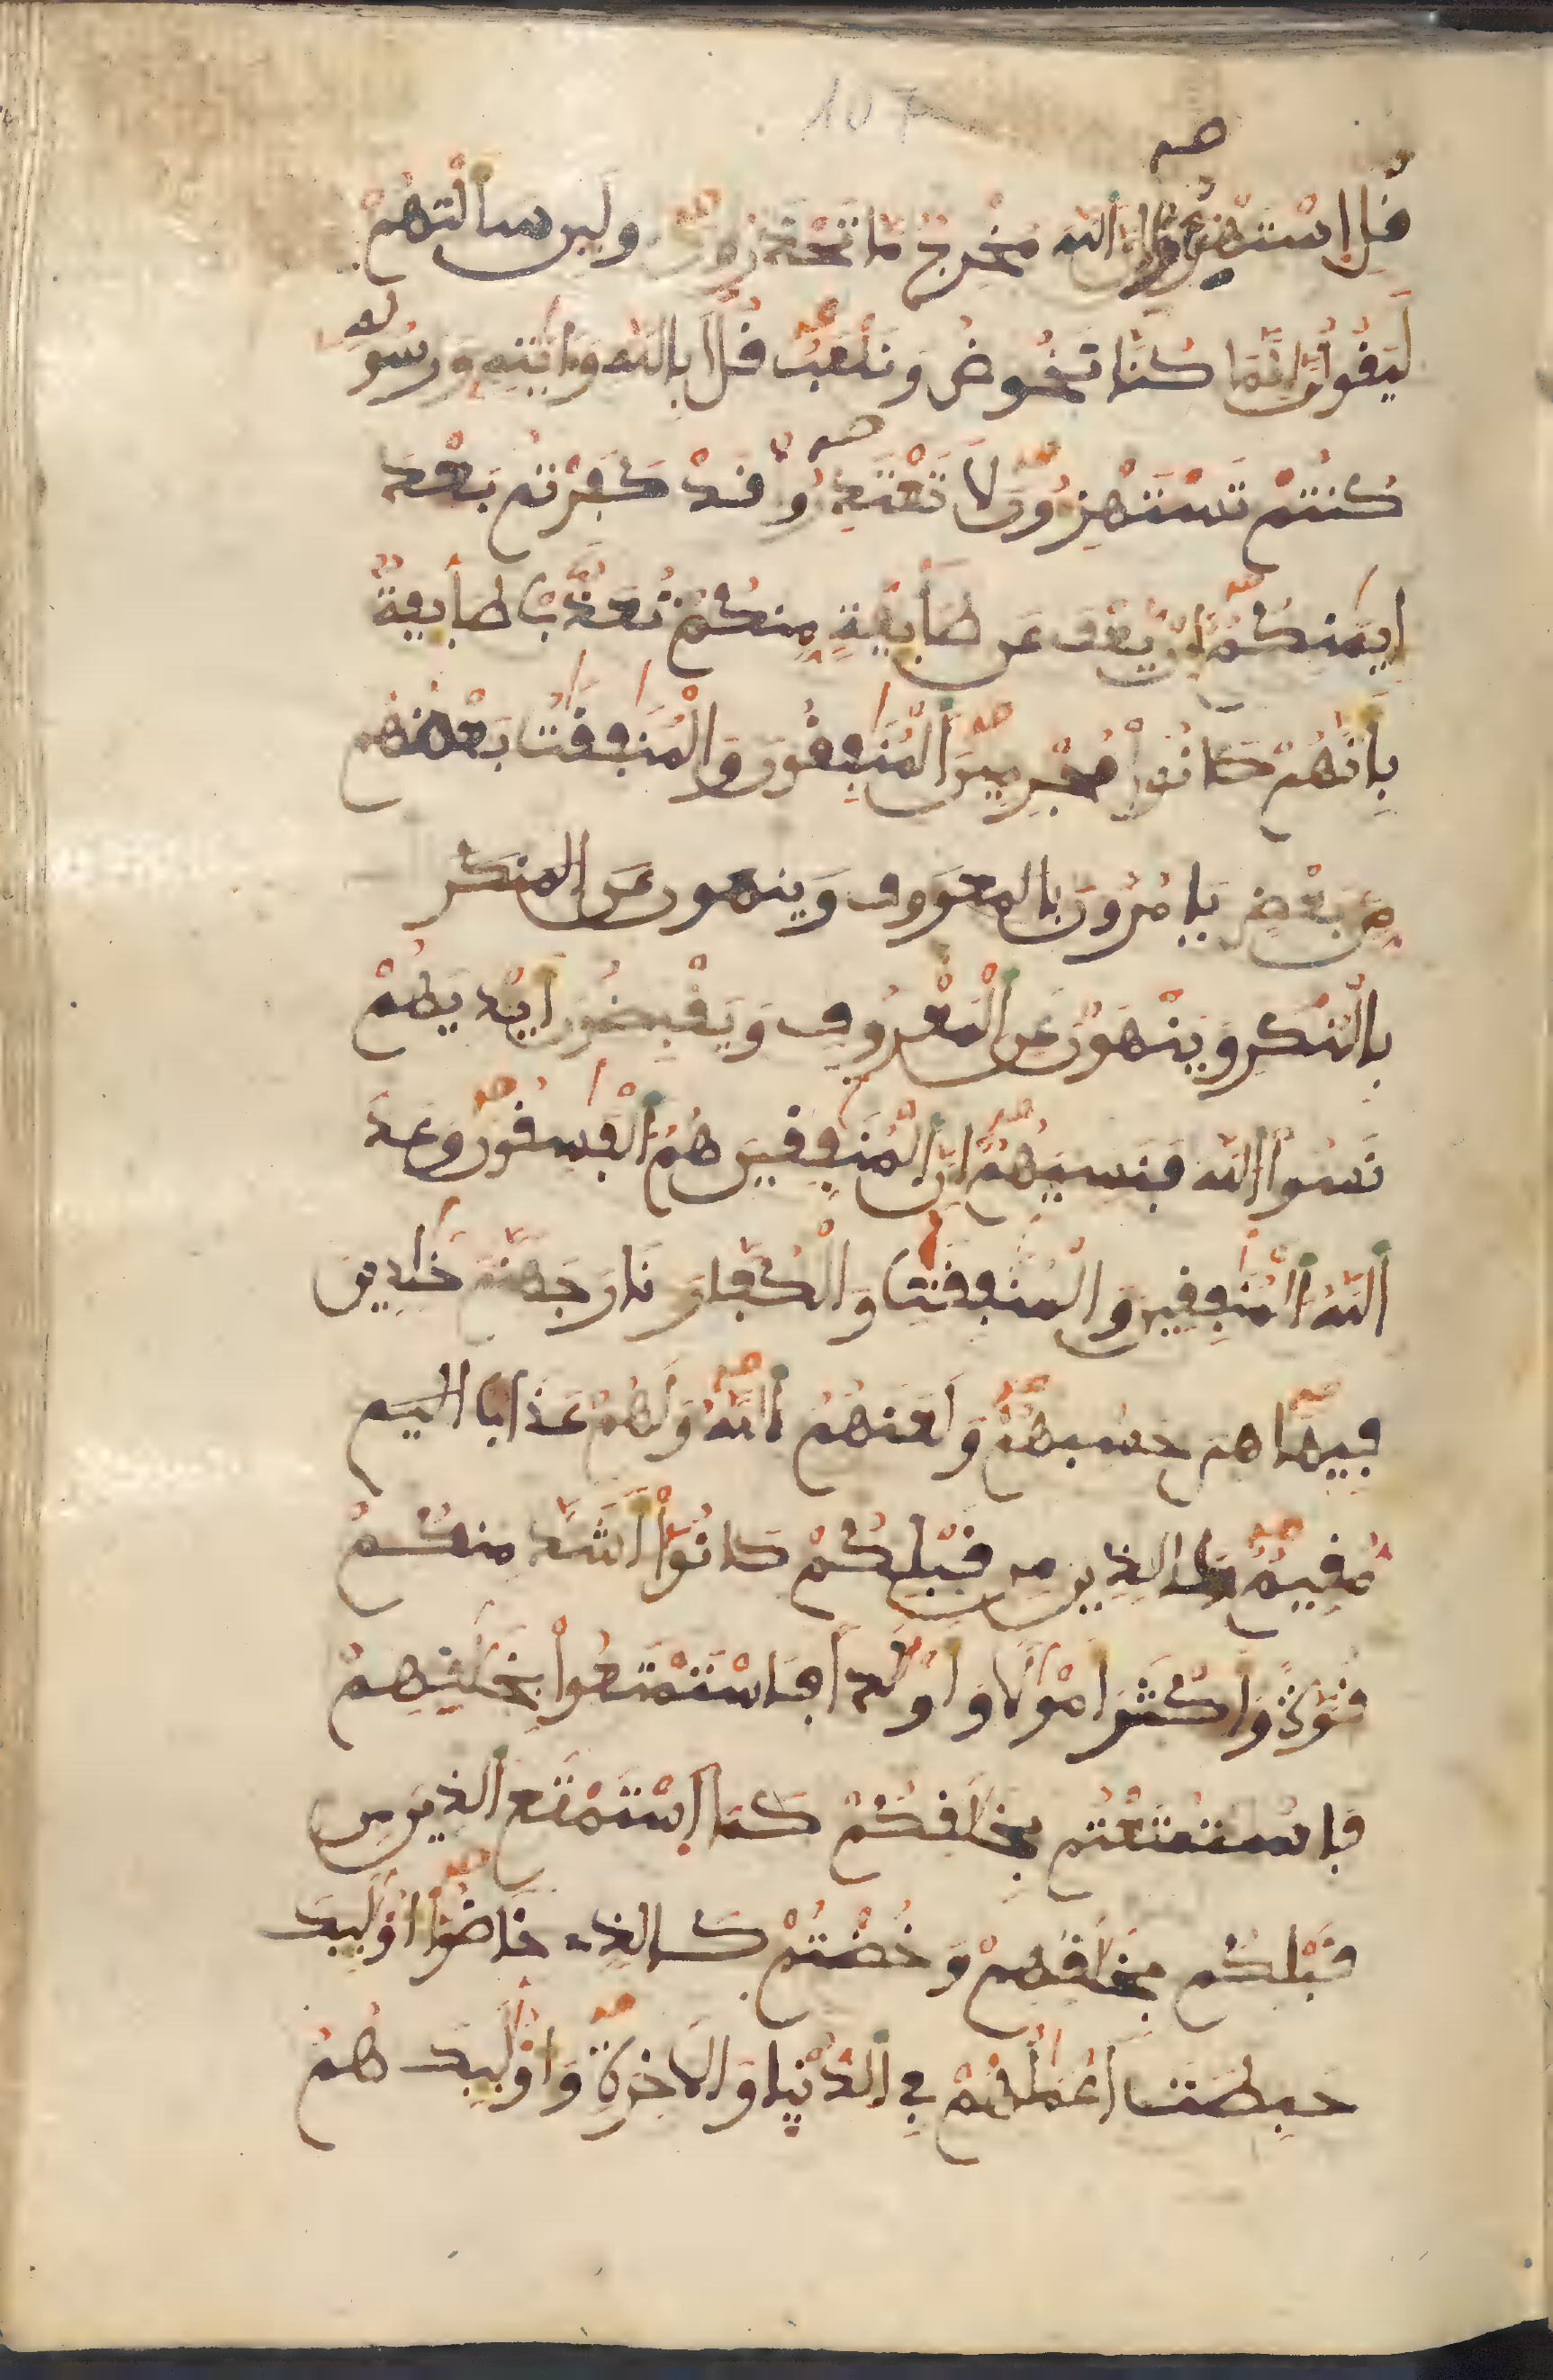 107
قل استهزءوا ان الله مخرج ما تحذرون ولين سالتهم
ليقولن انما كنا نخوض ونلعب قل ابالله وايته ورسوله
كنتم تستهزون لا تعتذروا قد كفرتم بعد
ايمنكم ان يعف عن طايفة منكم تعذب طايفة
بانهم كانوا مجرمين المنفقون والمنفقت بعضهم
من بعض يامرون بالمعروف وينهون عن المنكر
بالمنكر وينهون عن المعروف ويقبضون ايديهم
نسوا الله فنسيهم ان المنفقين هم الفسقون وعد
الله المنفقين والمنفقت والكفار نار جهنم خلدين
فيها هى حسبهم ولعنهم الله ولهم عذابا اليم
مقيم كالذين من قبلكم كانوا اشد منكم
قوة واكثر امولا واولدا فاستمتعوا بخلقهم
فاستمتعتم بخلقكم كما استمتع الذين من
قبلكم بخلقهم وخضتم كالذى خاضوا اوليك
حبطت اعملهم في الدنيا والاخرة واوليك هم